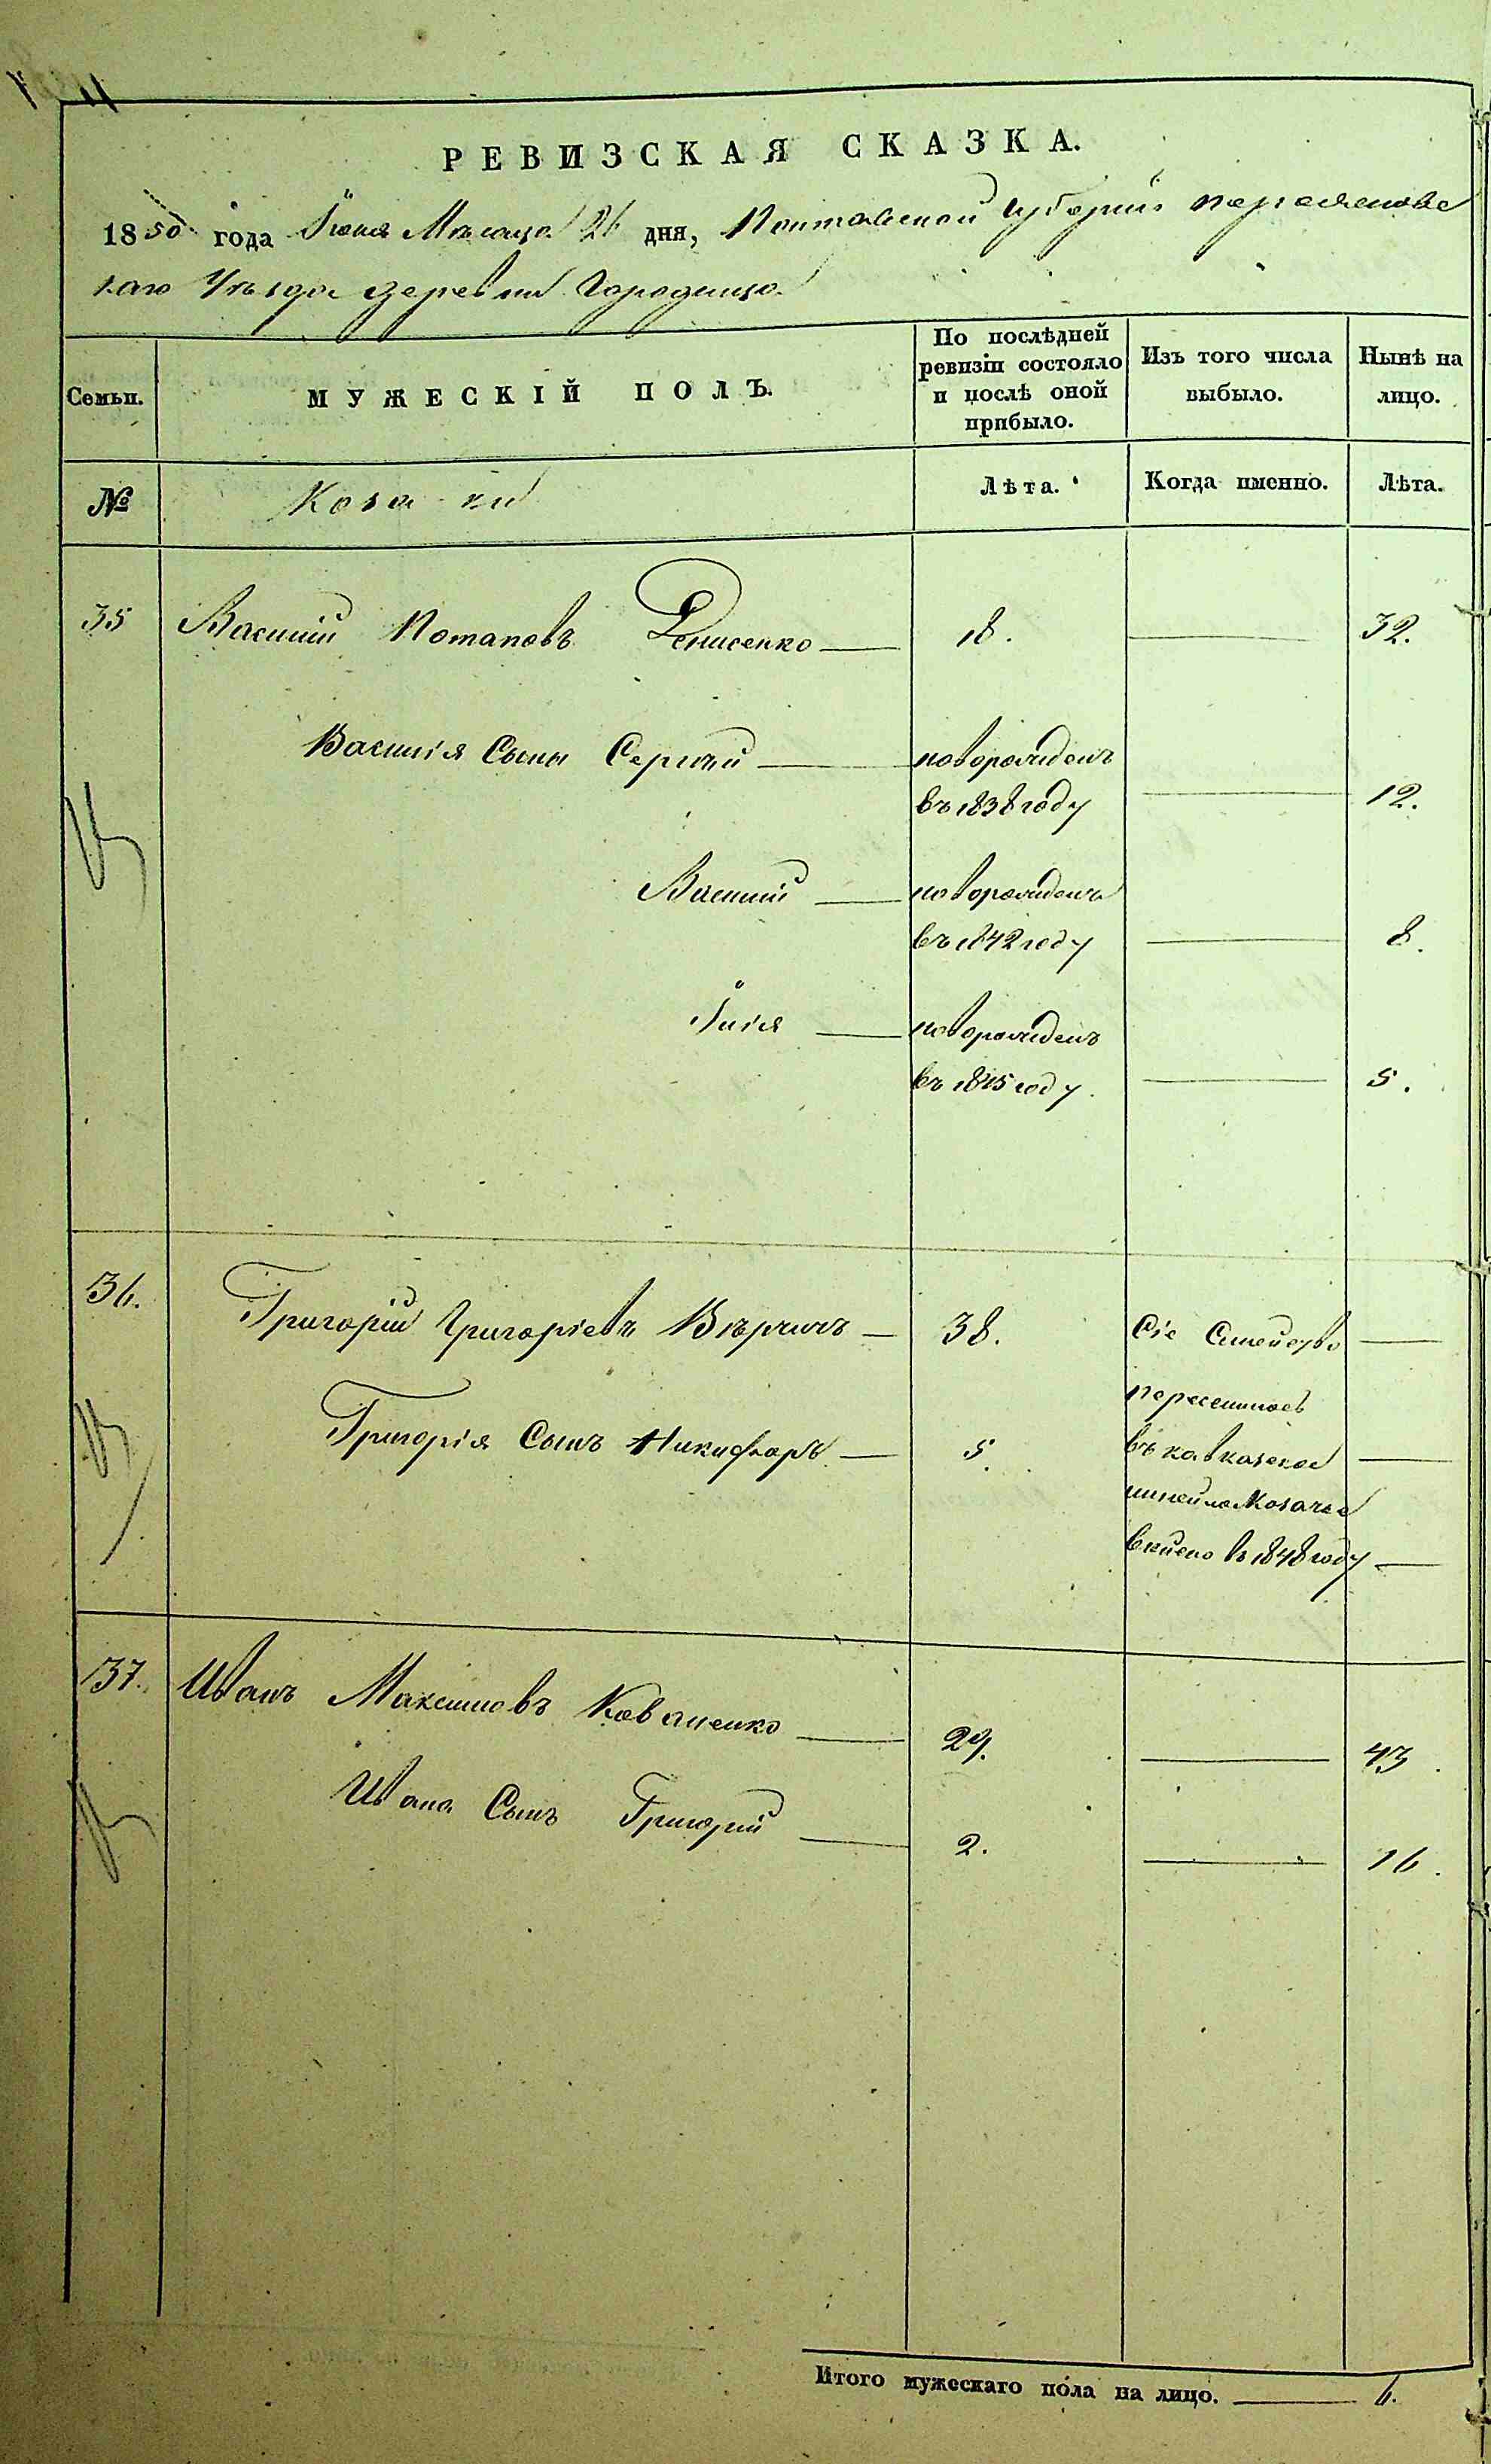 РЕВИЗСКАЯ СКАЗКА.
1850 года Іюня Мѣсяца 26 дня, Полтавской Губерніи Переяславс
каго Уѣзда деревни Городища
Семьи. МУЖЕСКІЙ ПОЛЪ. По послѣдней ревизіи состояло и послѣ оной прибыло. Изъ того числа выбыло. Нынѣ на лицо.
№ Козаки Лѣта. Когда именно. Лѣта.
35 Василій Потаповъ Денисенко — 18. — 32.
Василія Сыны Сергѣй — новорожденъ
въ 1838 году — 12.
Василій — новорожденъ
въ 1842 году — 8.
Илія — новорожденъ
въ 1845 году. — 5.
36. Григорій Григоріевъ — 38. Сіе Семейство —
переселилось
Григорія Сынъ Никифоръ — 5. въ кавказское —
линейное Козачье
войско въ 1848 году —
37. Иванъ Максимовъ Коваленко — 29. — 43.
Ивана Сынъ Григорій — 2. — 16.
Итого мужескаго пола на лицо. — 6.